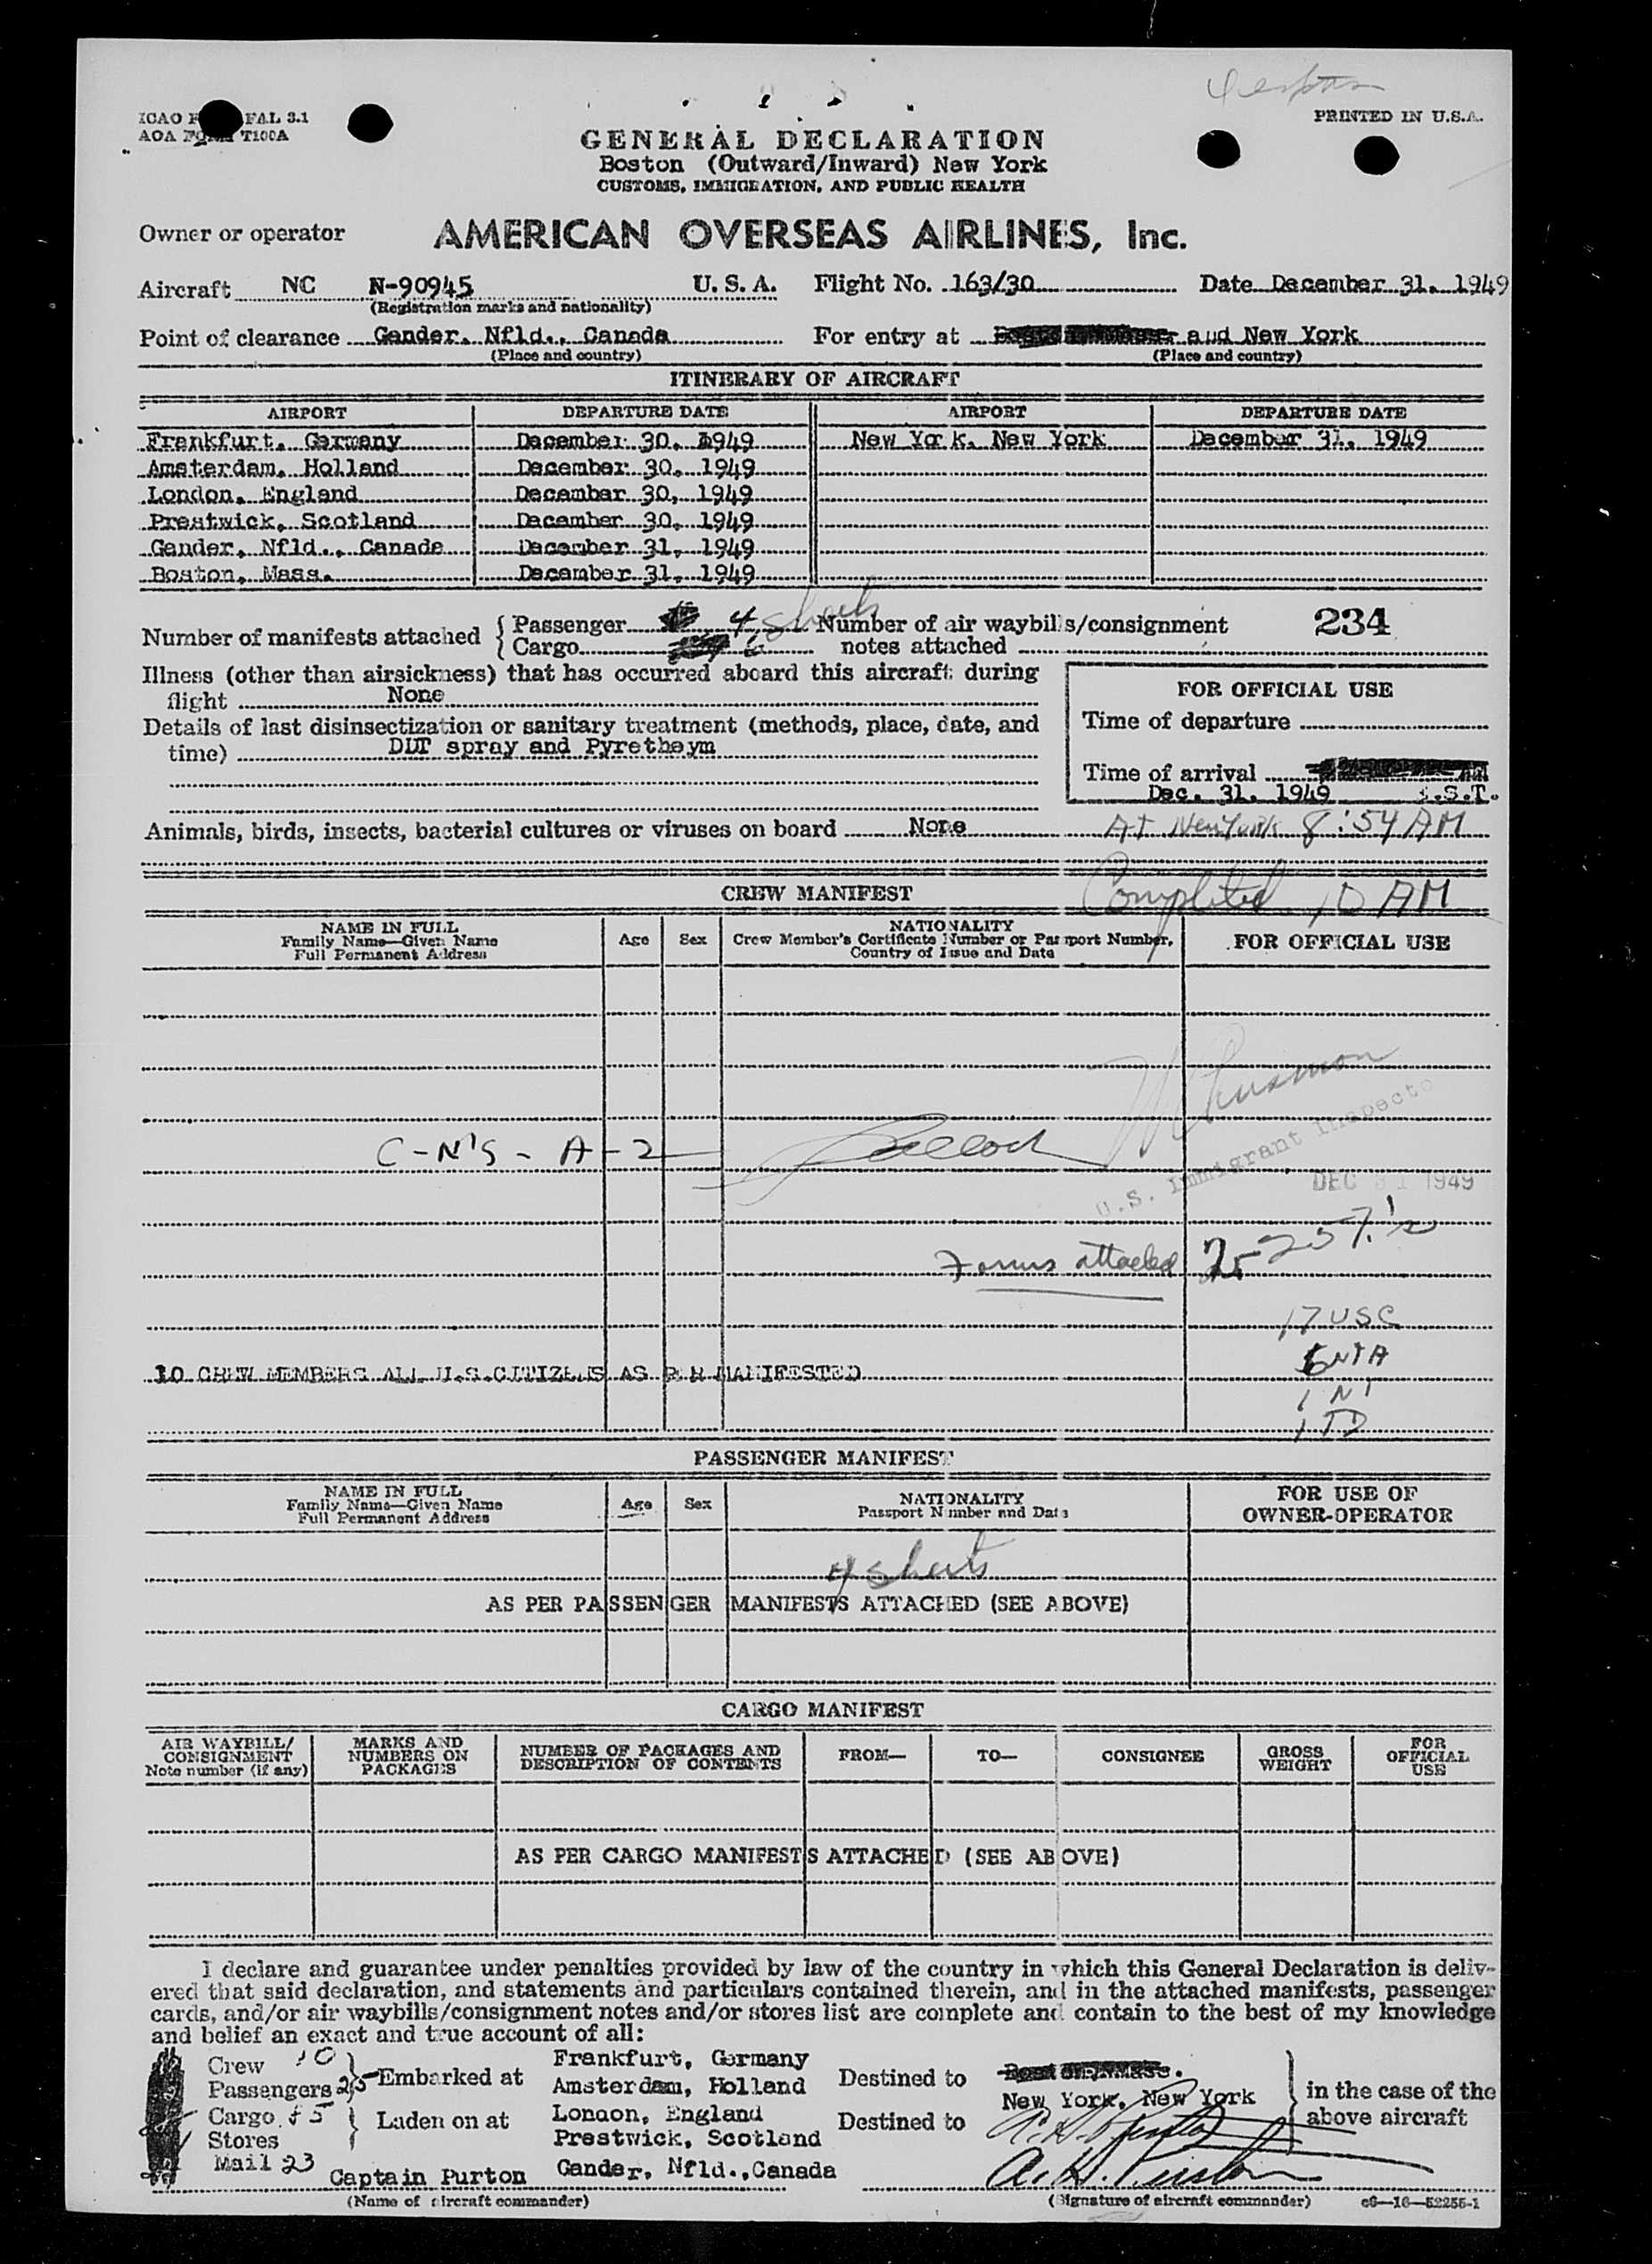 ICAO FAL 3.1
AOA T100A
PRINTED IN U.S.A.
GENERAL DECLARATION
Boston (Outward/Inward) New York
CUSTOMS, IMMIGRATION, AND PUBLIC HEALTH
Owner or operator AMERICAN OVERSEAS AIRLINES, Inc.
Aircraft NC N-90945 U. S. A. Flight No. 163/30 Date December 31, 1949
(Registration marks and nationality)
Point of clearance Gander, Nfld., Canada For entry at and New York
(Place and country) (Place and country)
ITINERARY OF AIRCRAFT
AIRPORT DEPARTURE DATE AIRPORT DEPARTURE DATE
Frankfurt, Germany December 30, 1949 New York, New York December 31, 1949
Amsterdam, Holland December 30, 1949
London, England December 30, 1949
Prestwick, Scotland December 30, 1949
Gander, Nfld., Canada December 31, 1949
Boston, Mass. December 31, 1949
Number of manifests attached { Passenger 4 Sheets Number of air waybills/consignment 234
Cargo 6 notes attached
Illness (other than airsickness) that has occurred aboard this aircraft during
flight None
FOR OFFICIAL USE
Details of last disinsectization or sanitary treatment (methods, place, date, and
time) DDT spray and Pyretheym
Time of departure
Time of arrival
Dec. 31, 1949 E.S.T.
Animals, birds, insects, bacterial cultures or viruses on board None At New York 8:54 AM
CREW MANIFEST Completed 10 AM
NAME IN FULL
Family Name—Given Name
Full Permanent Address
Age Sex
NATIONALITY
Crew Member's Certificate Number or Passport Number,
Country of Issue and Date
FOR OFFICIAL USE
C-N'S - A-2
U.S. Immigrant Inspector
DEC 31 1949
Forms attached 25-257's
17 USC
6 NIA
1 NI
1 TD
10 CREW MEMBERS ALL U.S.CITIZENS AS PER MANIFESTED
PASSENGER MANIFEST
NAME IN FULL
Family Name—Given Name
Full Permanent Address
Age Sex
NATIONALITY
Passport Number and Date
FOR USE OF
OWNER-OPERATOR
4 Sheets
AS PER PASSENGER MANIFESTS ATTACHED (SEE ABOVE)
CARGO MANIFEST
AIR WAYBILL/
CONSIGNMENT
Note number (if any)
MARKS AND
NUMBERS ON
PACKAGES
NUMBER OF PACKAGES AND
DESCRIPTION OF CONTENTS
FROM— TO— CONSIGNEE
GROSS
WEIGHT
FOR
OFFICIAL
USE
AS PER CARGO MANIFESTS ATTACHED (SEE ABOVE)
I declare and guarantee under penalties provided by law of the country in which this General Declaration is deliv-
ered that said declaration, and statements and particulars contained therein, and in the attached manifests, passenger
cards, and/or air waybills/consignment notes and/or stores list are complete and contain to the best of my knowledge
and belief an exact and true account of all:
Crew 10
Passengers 25
Cargo 15
Stores
Mail 23
Embarked at
Laden on at
Frankfurt, Germany
Amsterdam, Holland
London, England
Prestwick, Scotland
Gander, Nfld.,Canada
Destined to
New York, New York
Destined to
in the case of the
above aircraft
Captain Purton
(Name of aircraft commander) (Signature of aircraft commander) c6—16—52255-1